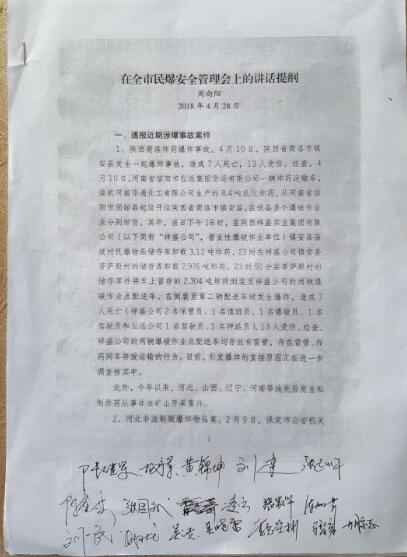 在全市民爆安全管理会上的讲话提纲
周向阳
2018年4月28日
一、通报近期涉爆事故案件
1、陕西商洛炸药爆炸事故。4月10日，陕西省商洛市镇
安县发生一起爆炸事故，造成7人死亡，13人受伤。经查，4
月10日，河南省信阳市弘运集团货运有限公司一辆炸药运输车，
装载河南华通化工有限公司生产的8.4吨乳化炸药，从河南省信
阳市固始县起运开往陕西省商洛市镇安县，在镇县多个爆破作业
点分别卸货。其中，当日下午18时，在陕西祥盛实业集团有限
公司（以下简称“祥盛公司”，营业性爆破作业单位）镇安县庙
坡村民爆物品储存库卸3.12吨炸药，23时在祥盛公司镇安县
菩萨殿村的储存库卸载2.976吨炸药，23时50分在菩萨殿村的
储存库外将车上留存的2.304吨炸药倒装至祥盛公司的两辆爆
破作业点配送车。在倒装至第二辆配送车时发生爆炸，造成7
人死亡（祥盛公司2名保管员、1名值班员、1名爆破员、1名
驾驶员和弘运公司1名驾驶员、1名押运员），13人受伤。经查，
祥盛公司的两辆爆破作业点配送车均存放有雷管，存在雷管、炸
药同车存放运输的行为。目前，引发爆炸的直接原因正在进一步
调查核实中。
此外，今年以来，河北、山西、辽宁、河南等地先后发生私
制炸药从事非法矿山开采案件。
2、河北非法制贩爆炸物品案。2月9日，保定市公安机关
黄锦坤